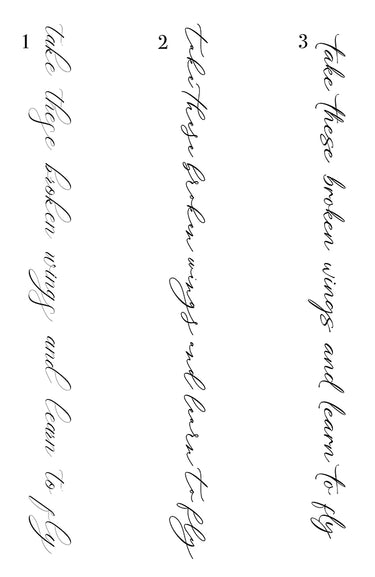 1
take these broken wings and learn to fly
2
take these broken wings and learn to fly
3
take these broken wings and learn to fly